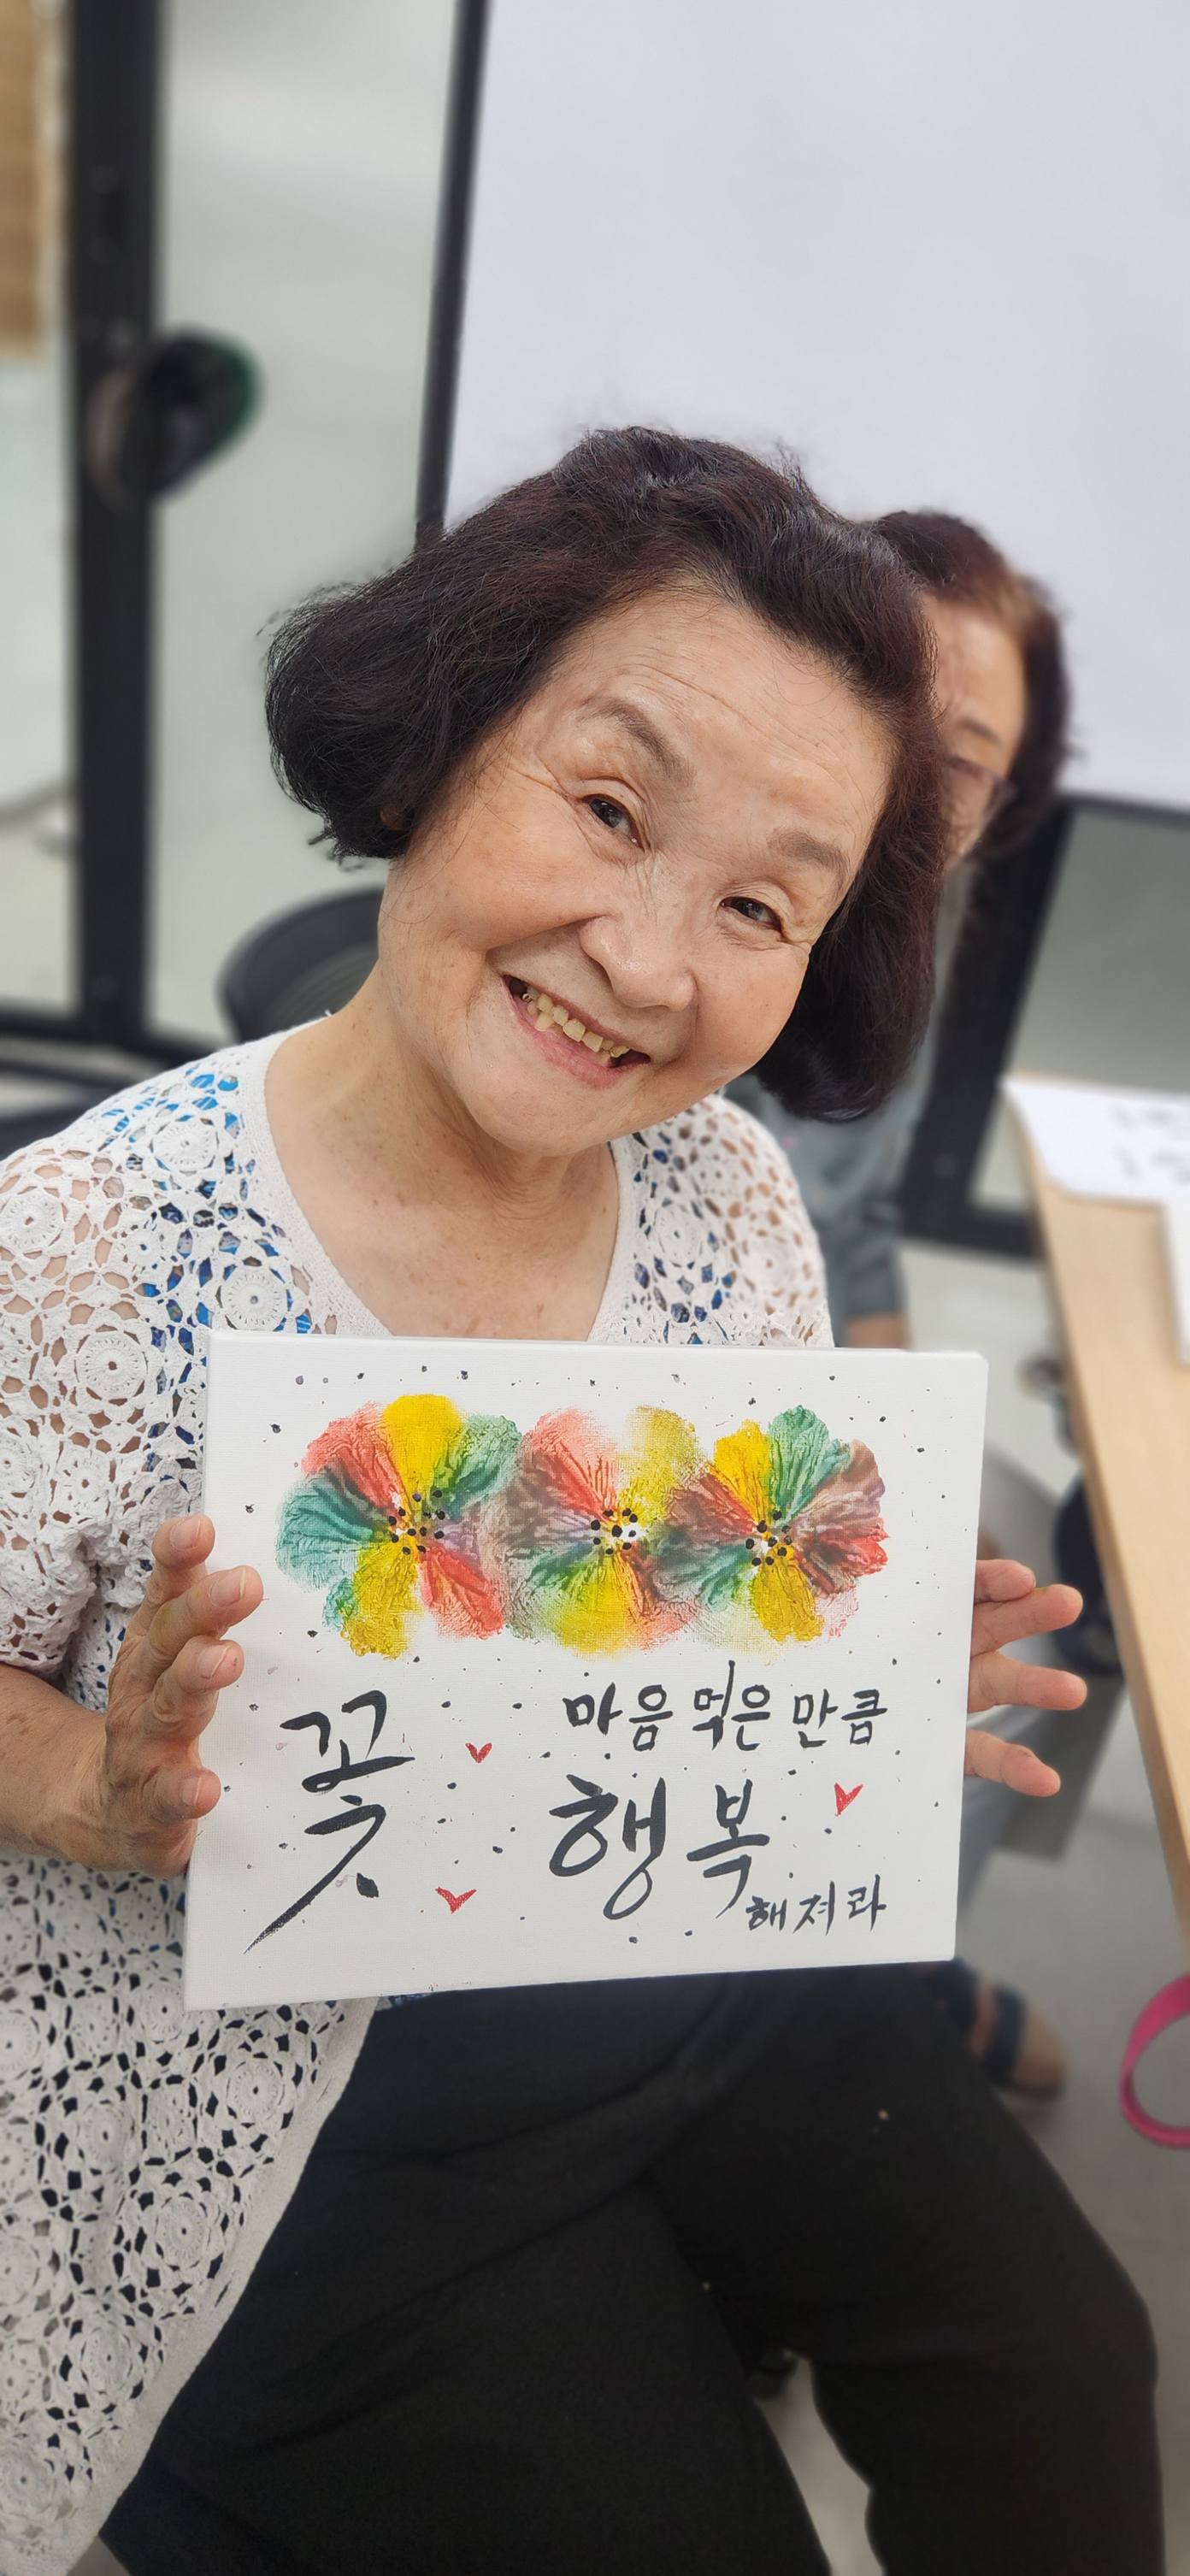 꽃
마음 먹은 만큼
행복
해져라